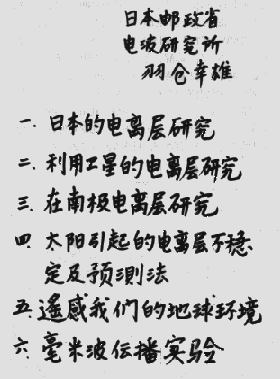 日本邮政省
电波研究所
羽仓幸雄
一. 日本的电离层研究
二. 利用卫星的电离层研究
三. 在南极电离层研究
四. 太阳引起的电离层不稳
定及预测法
五. 遥感我们的地球环境
六. 毫米波传播实验